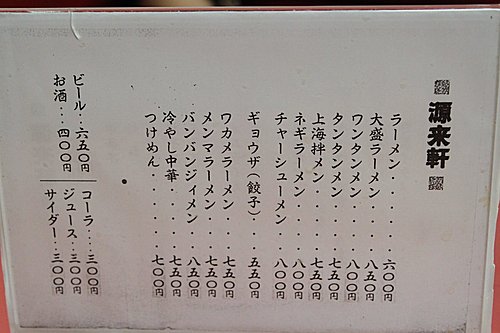 源来軒
ラーメン‥‥‥‥六〇〇円
大盛ラーメン‥‥‥八五〇円
ワンタンメン‥‥‥八〇〇円
タンタンメン‥‥‥七五〇円
上海拌メン‥‥‥七五〇円
ネギラーメン‥‥‥八〇〇円
チャーシューメン‥八〇〇円
ギョウザ(餃子)‥五五〇円
ワカメラーメン‥‥七五〇円
メンマラーメン‥‥七五〇円
バンバンジィメン‥八五〇円
冷やし中華‥‥‥七五〇円
つけめん‥‥‥‥七〇〇円
ビール‥六五〇円
お酒‥四〇〇円
コーラ‥三〇〇円
ジュース‥三〇〇円
サイダー‥三〇〇円